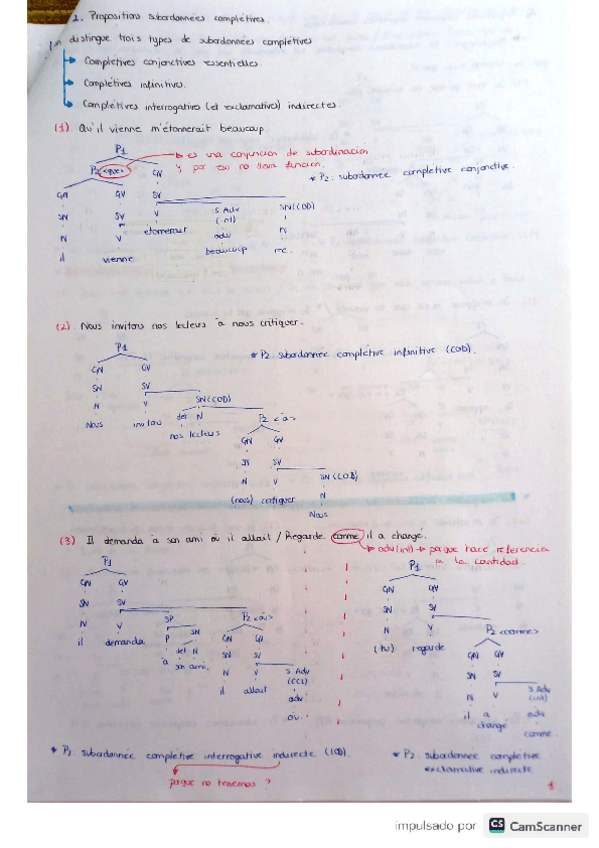 1. Propositions subordonnées complétives.
On distingue trois types de subordonnées complétives
Complétives conjonctives essentielles.
Complétives infinitives.
Complétives interrogatives (et exclamatives) indirectes.
(1) Qu'il vienne m'étonnerait beaucoup.
P1
P2 <que> es una conjunción de subordinación
y por eso no lleva función.
GV
* P2: subordonnée complétive conjonctive.
GN GV SV
SN SV V S Adv SN (COD)
(int)
N V étonnerait adv N
il vienne beaucoup me.
(2) Nous invitons nos lecteurs à nous critiquer.
P1
* P2 subordonnée complétive infinitive (COD).
GN GV
SN SV
N V SN (COD)
Nous invitons det N P2 <à>
nos lecteurs GN GV
SN SV
N V SN (COD)
(nous) critiquer N
Nous
(3) Il demanda à son ami où il allait / Regarde comme il a changé.
adv (int) porque hace referencia
a la cantidad.
P1 P1
GN GV GN GV
SN SV SN SV
N V SP P2 <où> N V P2 <comme>
il demanda P SN GN GV (tu) regarde GN GV
à det N SN SV SN SV
son ami. N V S Adv N V S Adv
(CCL) (int)
il allait adv il a changé adv
où. comme.
* P2 subordonnée complétive interrogative indirecte (COD).
* P2 subordonnée complétive
exclamative indirecte
porque no tenemos ?
1
impulsado por CS CamScanner